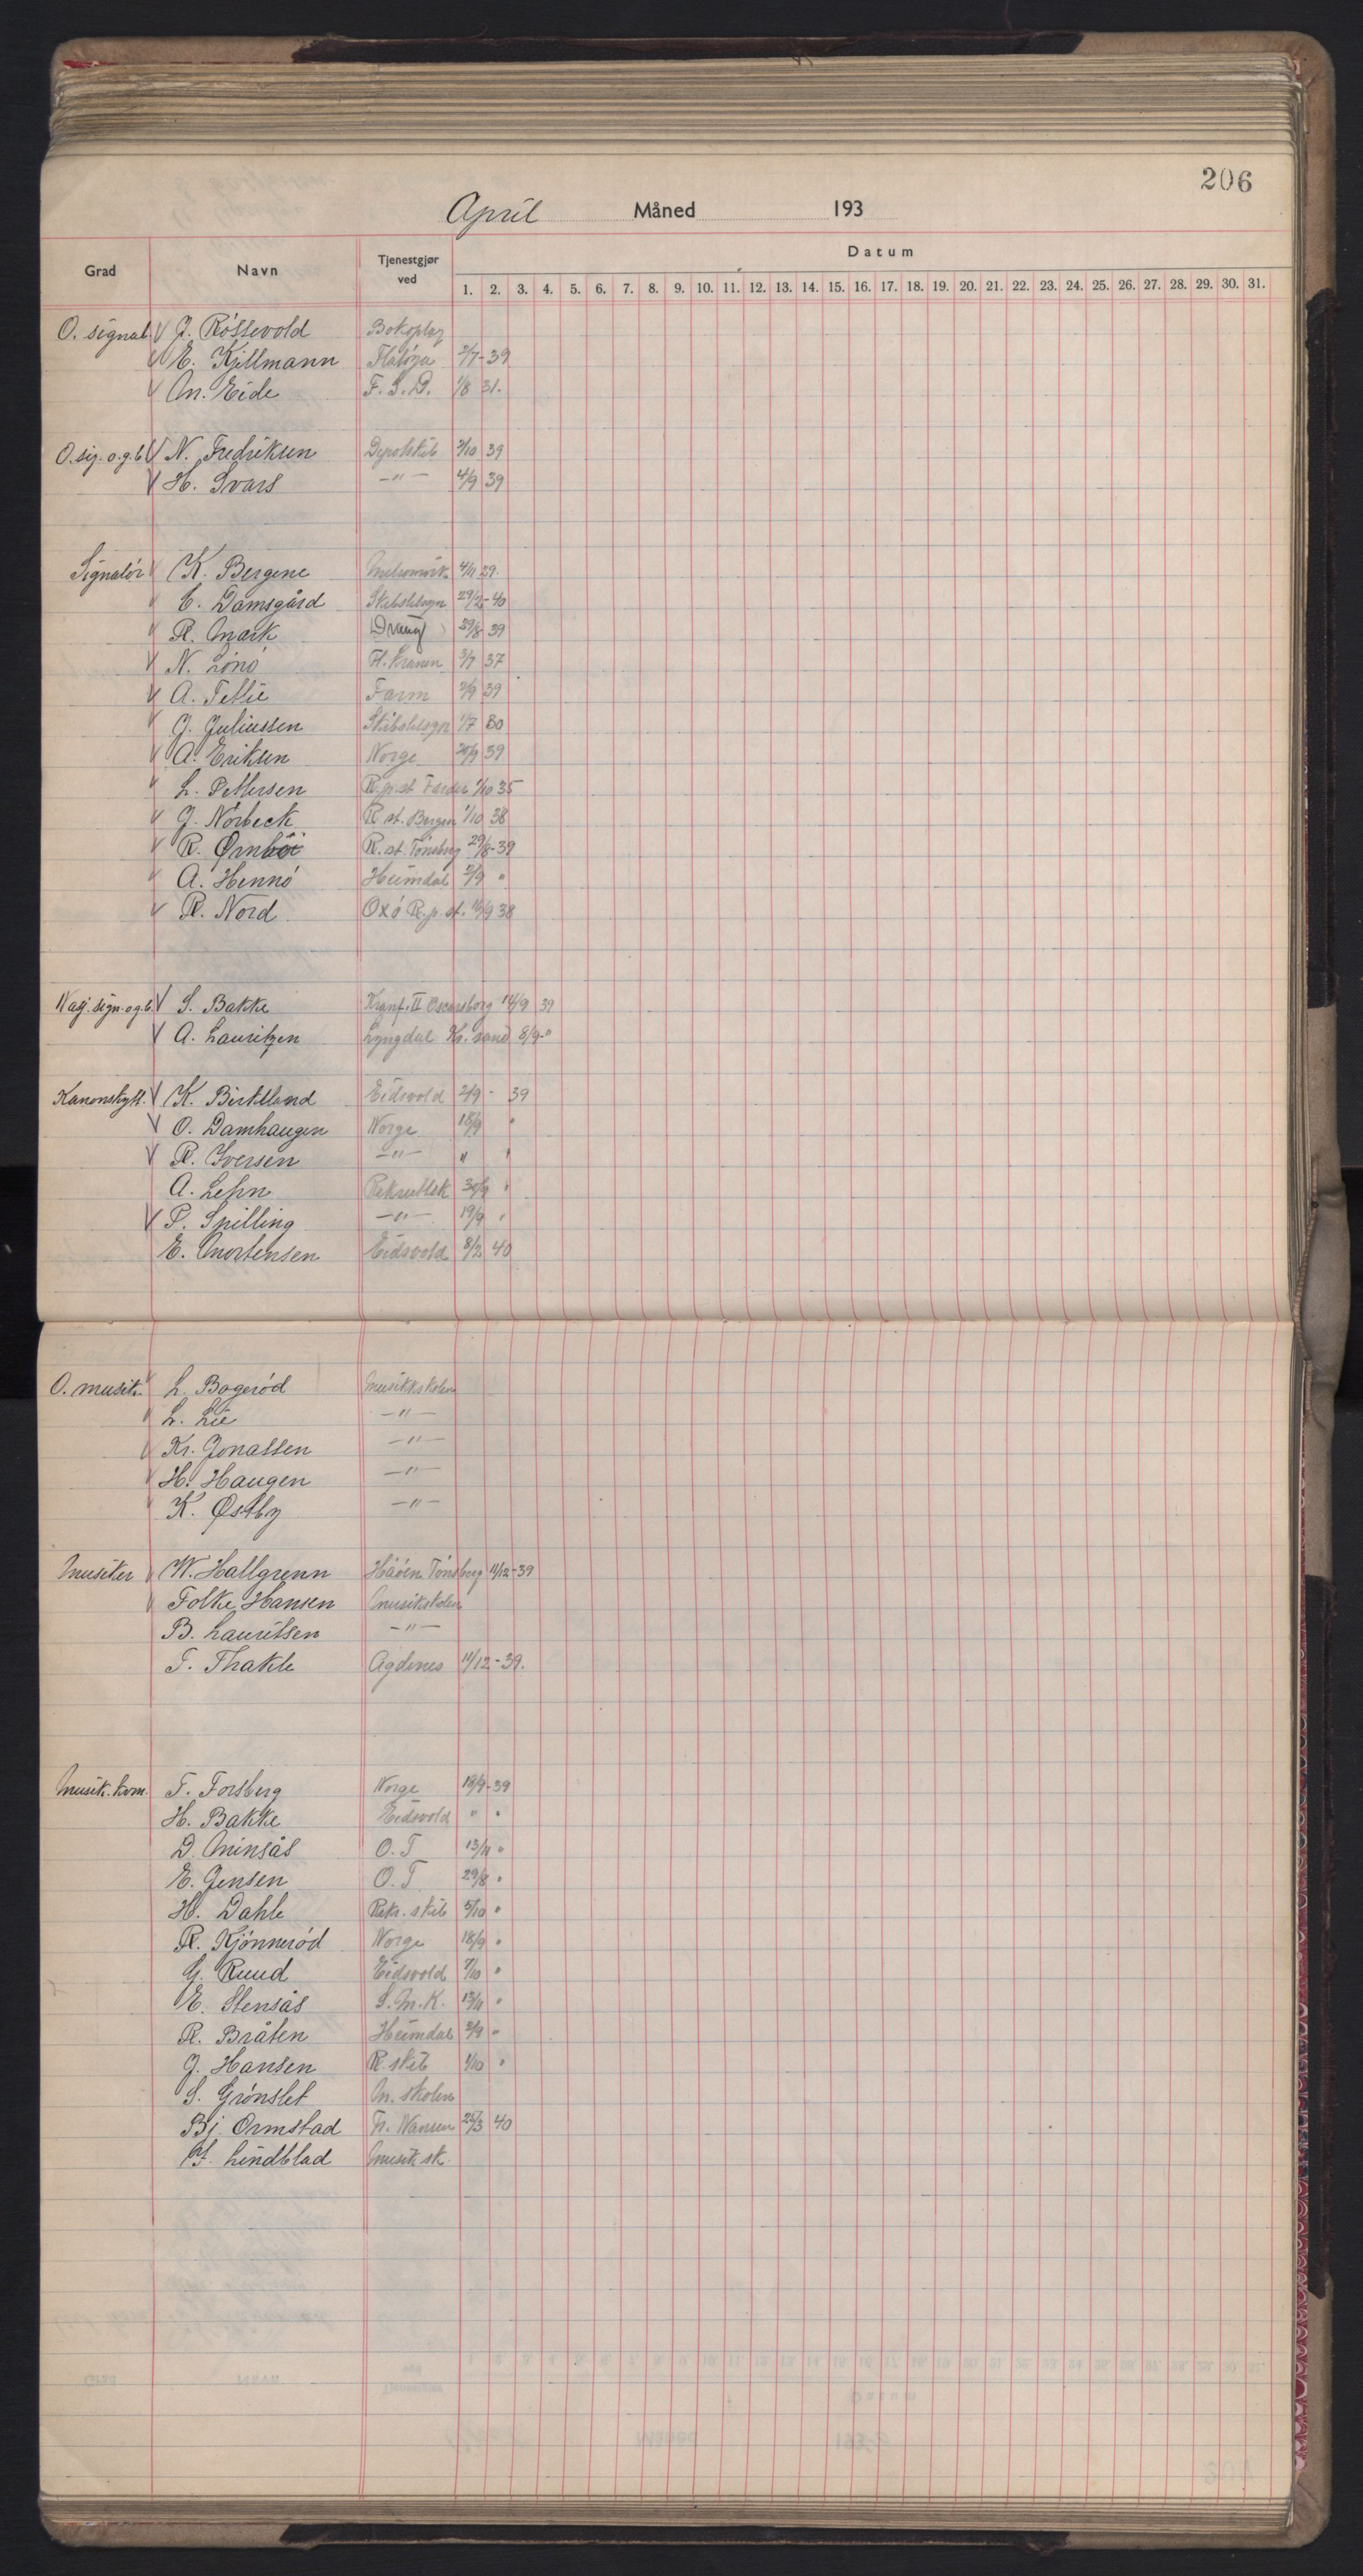 206
April Måned 193
Grad Navn Tjenestgjør ved Datum
1. 2. 3. 4. 5. 6. 7. 8. 9. 10. 11. 12. 13. 14. 15. 16. 17. 18. 19. 20. 21. 22. 23. 24. 25. 26. 27. 28. 29. 30. 31.
O. signal. J. Róssevold
E. Kjellmann Flatøya 2/7-39
M. Eide F.S.D. 1/8 31.
O. sig. o.g.b. N. Fredriksen Depotskib 2/10 39
H. Svars -"- 4/9 39
Signalór K. Bergene 4/11 29.
C. Damsgård 29/2-40
R. Mark Draug 29/8 39
N. Lónó Fl. Kranen 3/7 37
A. Tellie Farm 2/9 39
J. Juliussen 1/7 30
A. Eriksen Norge 39
L. Pettersen R.p.st Færder 1/10 35
J. Nórbeck R st. Bergen 1/10 38
R. R. st. Tónsberg 29/8-39
A. Hennó Heimdal 2/9 "
R. Nord Oxó R.p.st. 38
S. Bakke Oscarsborg 14/9 39
A. Lauritzen Lyngdal Kr. sand 8/9-"
Kanonskytt. K. Birkeland Eidsvold 2/9 - 39
O. Damhaugen Norge 18/9 "
R. Iversen -"- " "
A. Lehn "
P. Spilling -"- 19/9 "
E. Mortensen Eidsvold 8/2 40
O. musik. L. Bogeród Musikkskolen
L. Lie -"-
Kr. Jonassen -"-
H. Haugen -"-
K. Østby -"-
Musiker W. Hallgrenn Håóen Tónsberg 11/12-39
Folke Hansen Musikskolen
B. Lauritsen -"-
T. Thakle Agdenes 11/12-39.
Musik. kom. T. Forsberg Norge 18/9-39
H. Bakke Eidsvold " "
D. Minsås O.T 13/11 "
E. Jensen O.T 29/8 "
H. Dahle Rekr. skib 5/10 "
R. Kjónneród Norge 18/9 "
G. Ruud Eidsvold 7/10 "
E. Stensås S.M.K. 13/11 "
R. Bråten Heimdal 2/9 "
J. Hansen R skib 1/10 "
S. Grónslet M. skolen
Bj. Ormstad Fr. Nansen 25/3 40
Lindblad Musik sk.